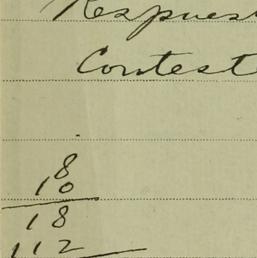 Respues
Contest
18
10
18
112